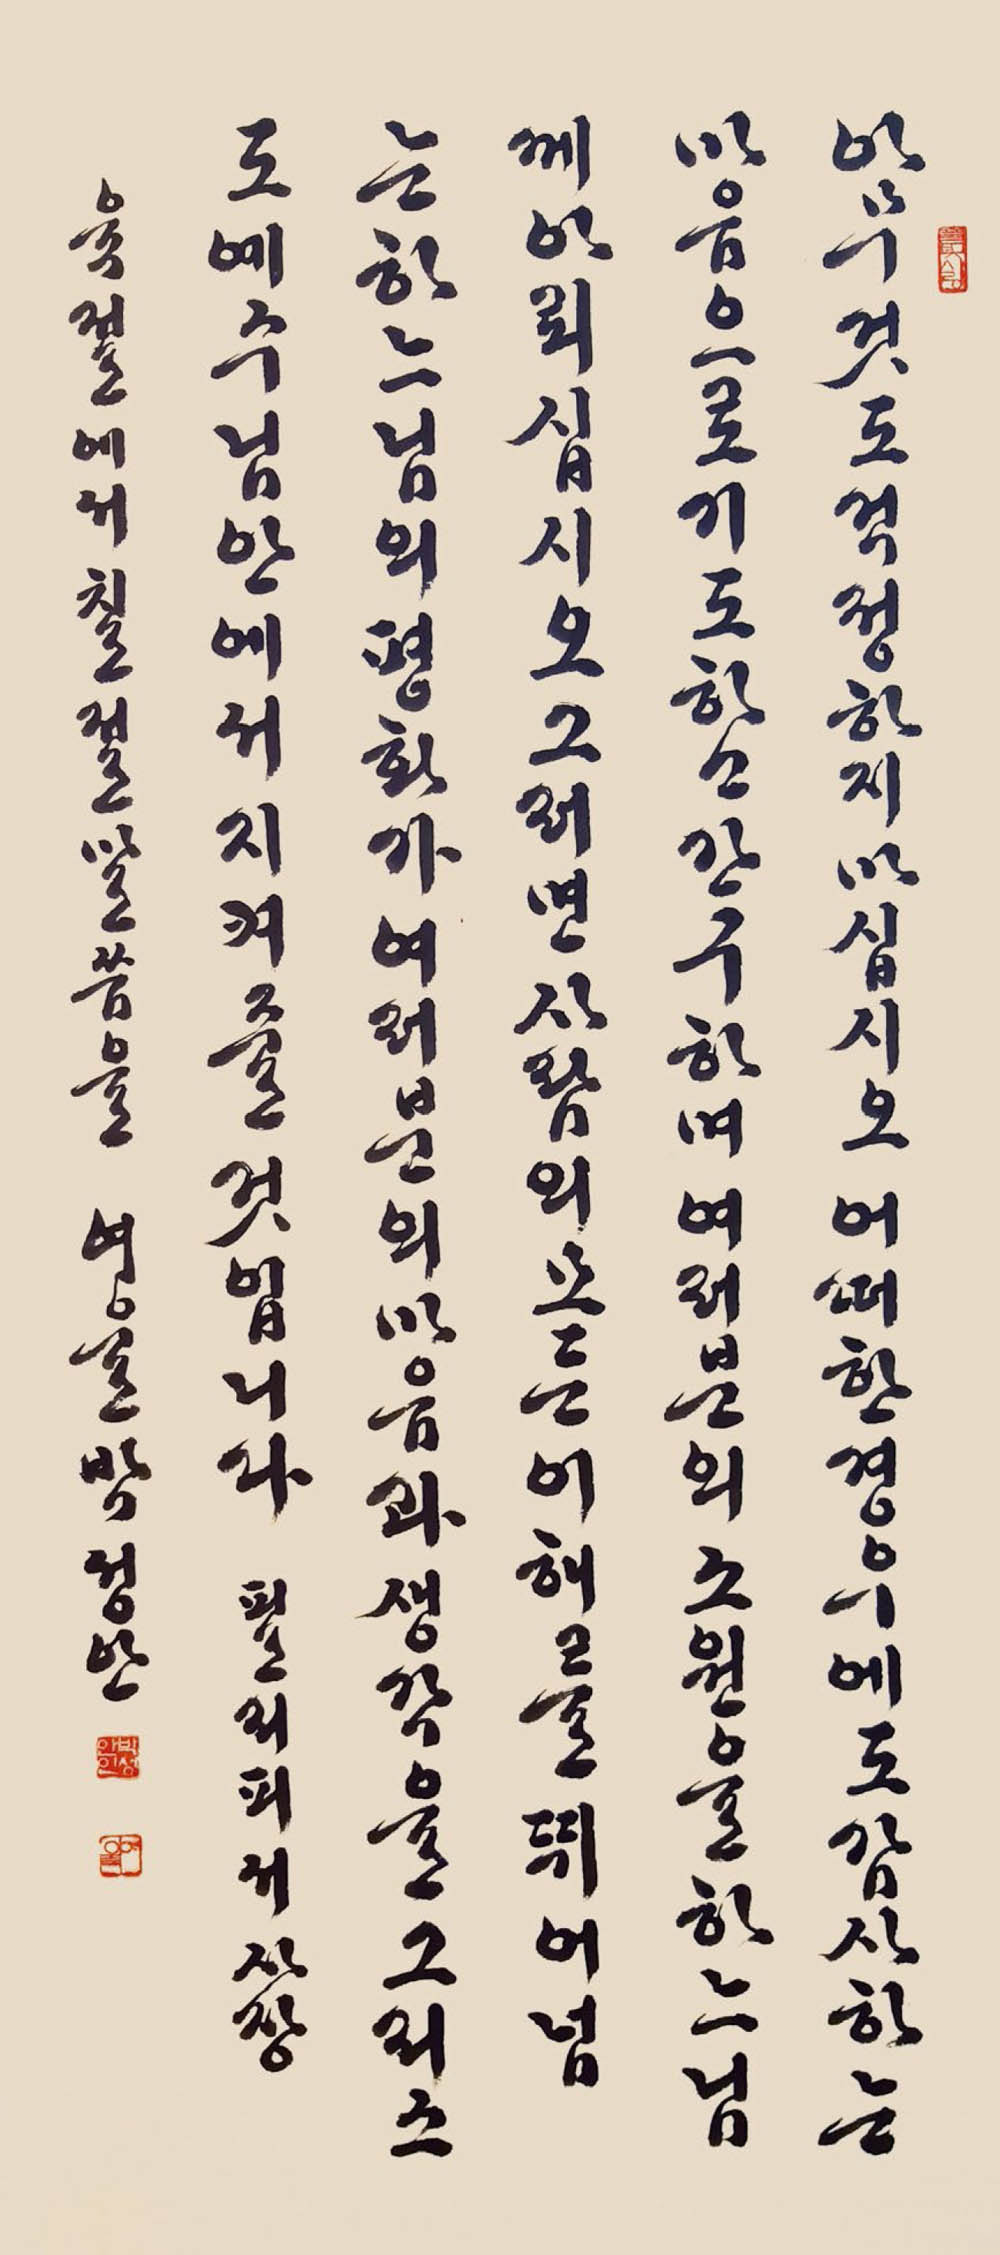 아무것도 걱정하지 마십시오 어떠한 경우에도 감사하는
마음으로 기도하고 간구하며 여러분의 소원을 하느님
께 아뢰십시오 그러면 사람의 모든 이해를 뛰어넘
는 하느님의 평화가 여러분의 마음과 생각을 그리스
도 예수님 안에서 지켜줄 것입니다 필리피서 사장
육절에서 칠절 말씀을 여울 박성안